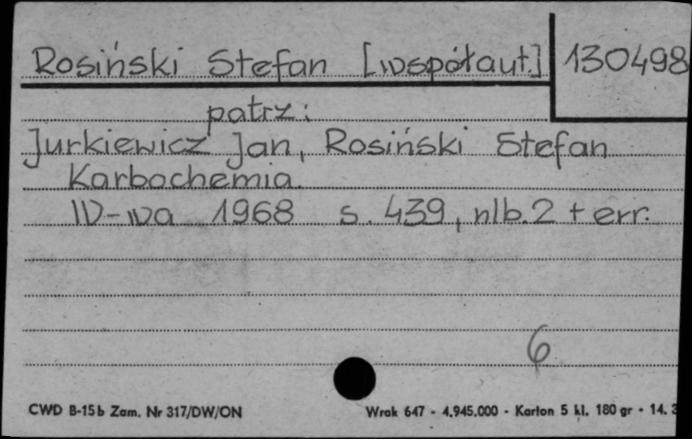 Rosiński Stefan [współaut.] 130498
patrz:
Jurkiewicz Jan, Rosiński Stefan
Karbochemia.
W-wa 1968 s. 439, nlb. 2 + err.
6
CWD B-15b Zam. Nr 317/DW/ON Wrak 647 - 4.945.000 - Karton 5 kl. 180 gr - 14. 3